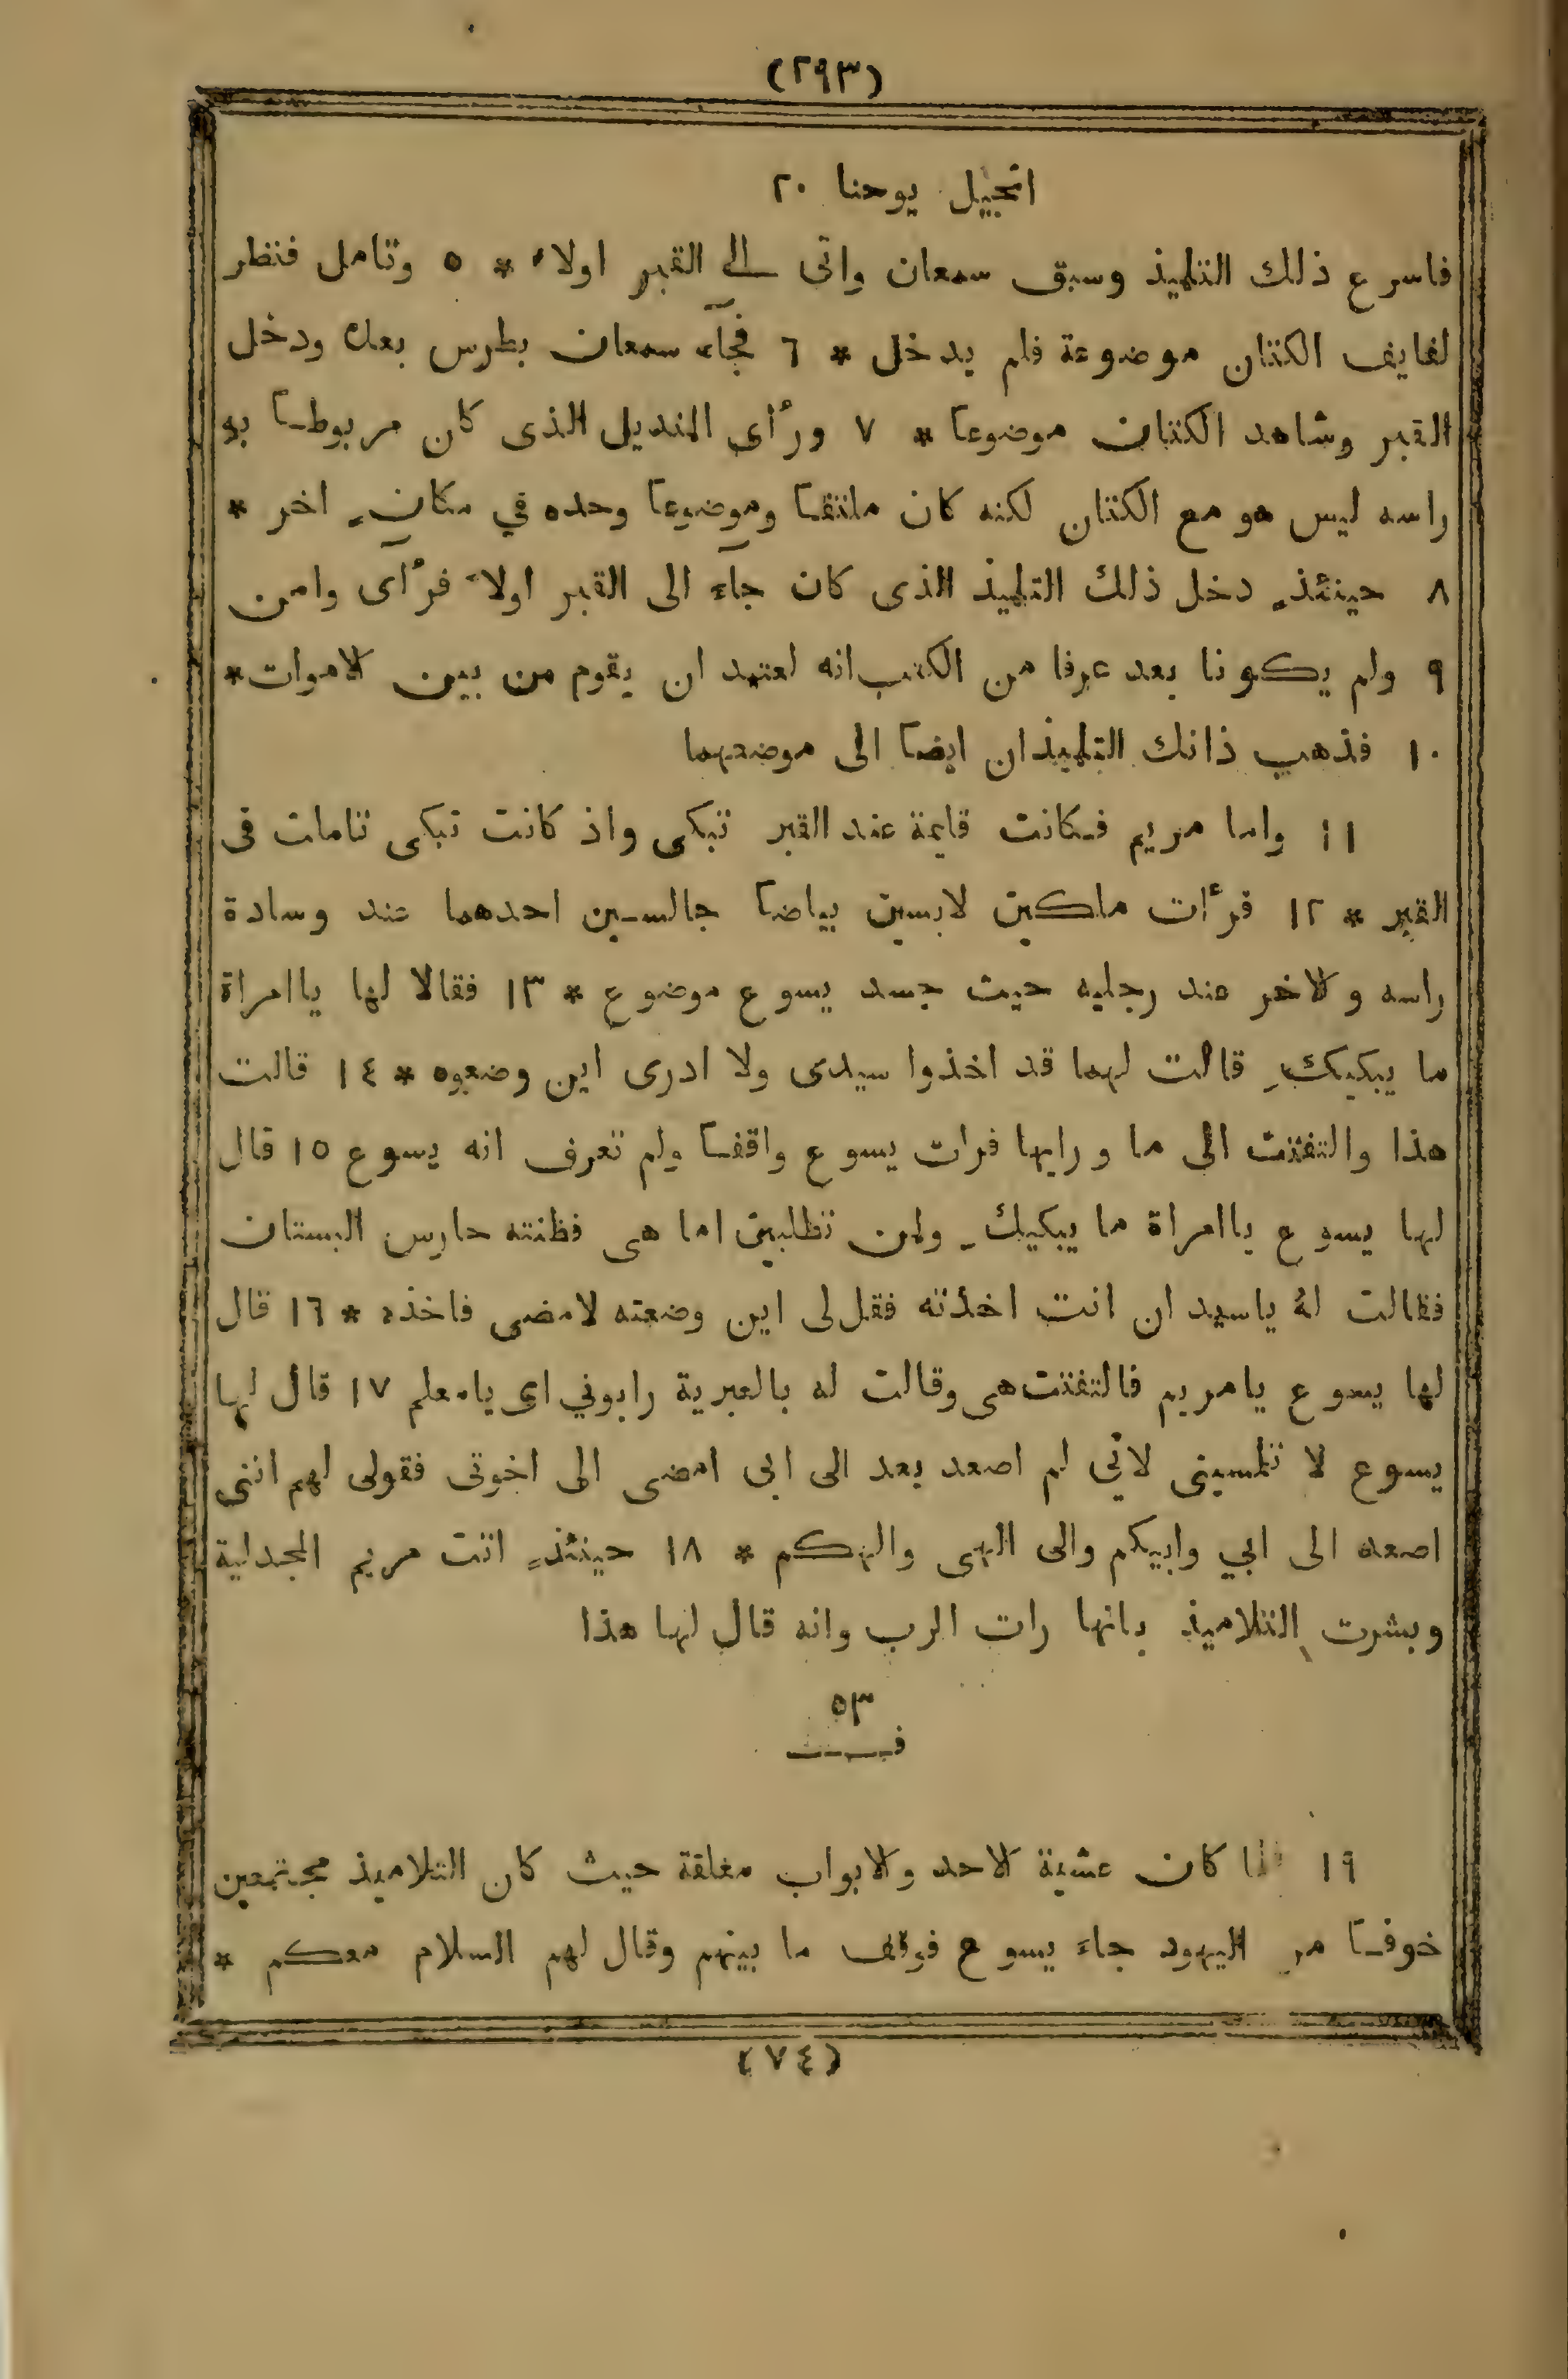 (٢٩٣)
انجيل يوحنا ٢٠
فاسرع ذلك التلميذ وسبق سمعان واتى الى القبر اولاً * ٥ وتامل فنظر
لفايف الكتان موضوعة فلم يدخل * ٦ فجآء سمعان بطرس بعده ودخل
القبر وشاهد الكتان موضوعاً * ٧ ورأى المنديل الذى كان مربوطاً به
راسه ليس هو مع الكتان لكنه كان ملتفاً وموضوعاً وحده في مكانٍ اخر *
٨ حينئذٍ دخل ذلك التلميذ الذى كان جآء الى القبر اولاً فرأى وامن
٩ ولم يكونا بعد عرفا من الكتب انه لعتيد ان يقوم من بين الاموات *
١٠ فذهب ذانك التلميذان ايضاً الى موضعهما
١١ واما مريم فكانت قايمة عند القبر تبكى واذ كانت تبكى تاملت فى
القبر * ١٢ فرأت ملكين لابسين بياضاً جالسين احدهما عند وسادة
راسه والاخر عند رجليه حيث جسد يسوع موضوع * ١٣ فقالا لها ياامراة
ما يبكيكِ قالت لهما قد اخذوا سيدى ولا ادرى اين وضعوه * ١٤ قالت
هذا والتفتت الى ما ورايها فرات يسوع واقفاً ولم تعرف انه يسوع ١٥ قال
لها يسوع ياامراة ما يبكيكِ ولمن تطلبين اما هى فظنته حارس البستان
فقالت لهُ ياسيد ان انت اخذته فقل لى اين وضعته لامضى فاخذه * ١٦ قال
لها يسوع يامريم فالتفتت هى وقالت له بالعبرية رابوني اى يامعلم ١٧ قال لها
يسوع لا تلمسينى لاني لم اصعد بعد الى ابى امضى الى اخوتى فقولى لهم اننى
اصعد الى ابي وابيكم والى الهى والهكم * ١٨ حينئذٍ اتت مريم المجدلية
وبشرت التلاميذ بانها رات الرب وانه قال لها هذا
٥٣
ف
١٩ فلما كان عشية الاحد والابواب مغلقة حيث كان التلاميذ مجتمعين
خوفاً من اليهود جاء يسوع فوقف ما بينهم وقال لهم السلام معكم *
(٧٤)